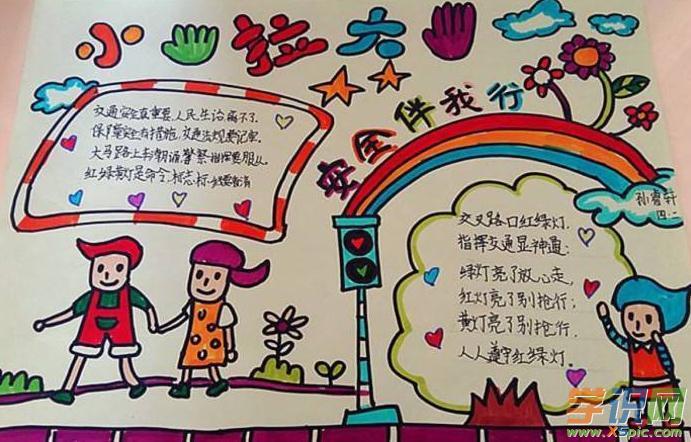 小拉大
安全伴我行
交通安全真重要,人民生活离不了.
保障安全有措施,交通法规要记牢.
大马路上车潮涌,警察指挥要服从.
红绿黄灯是命令,标志标线要看清
孙睿轩
交叉路口红绿灯.
指挥交通显神通:
绿灯亮了放心走,
红灯亮了别抢行;
黄灯亮了别抢行.
人人遵守红绿灯.
学识网
www.xspic.com